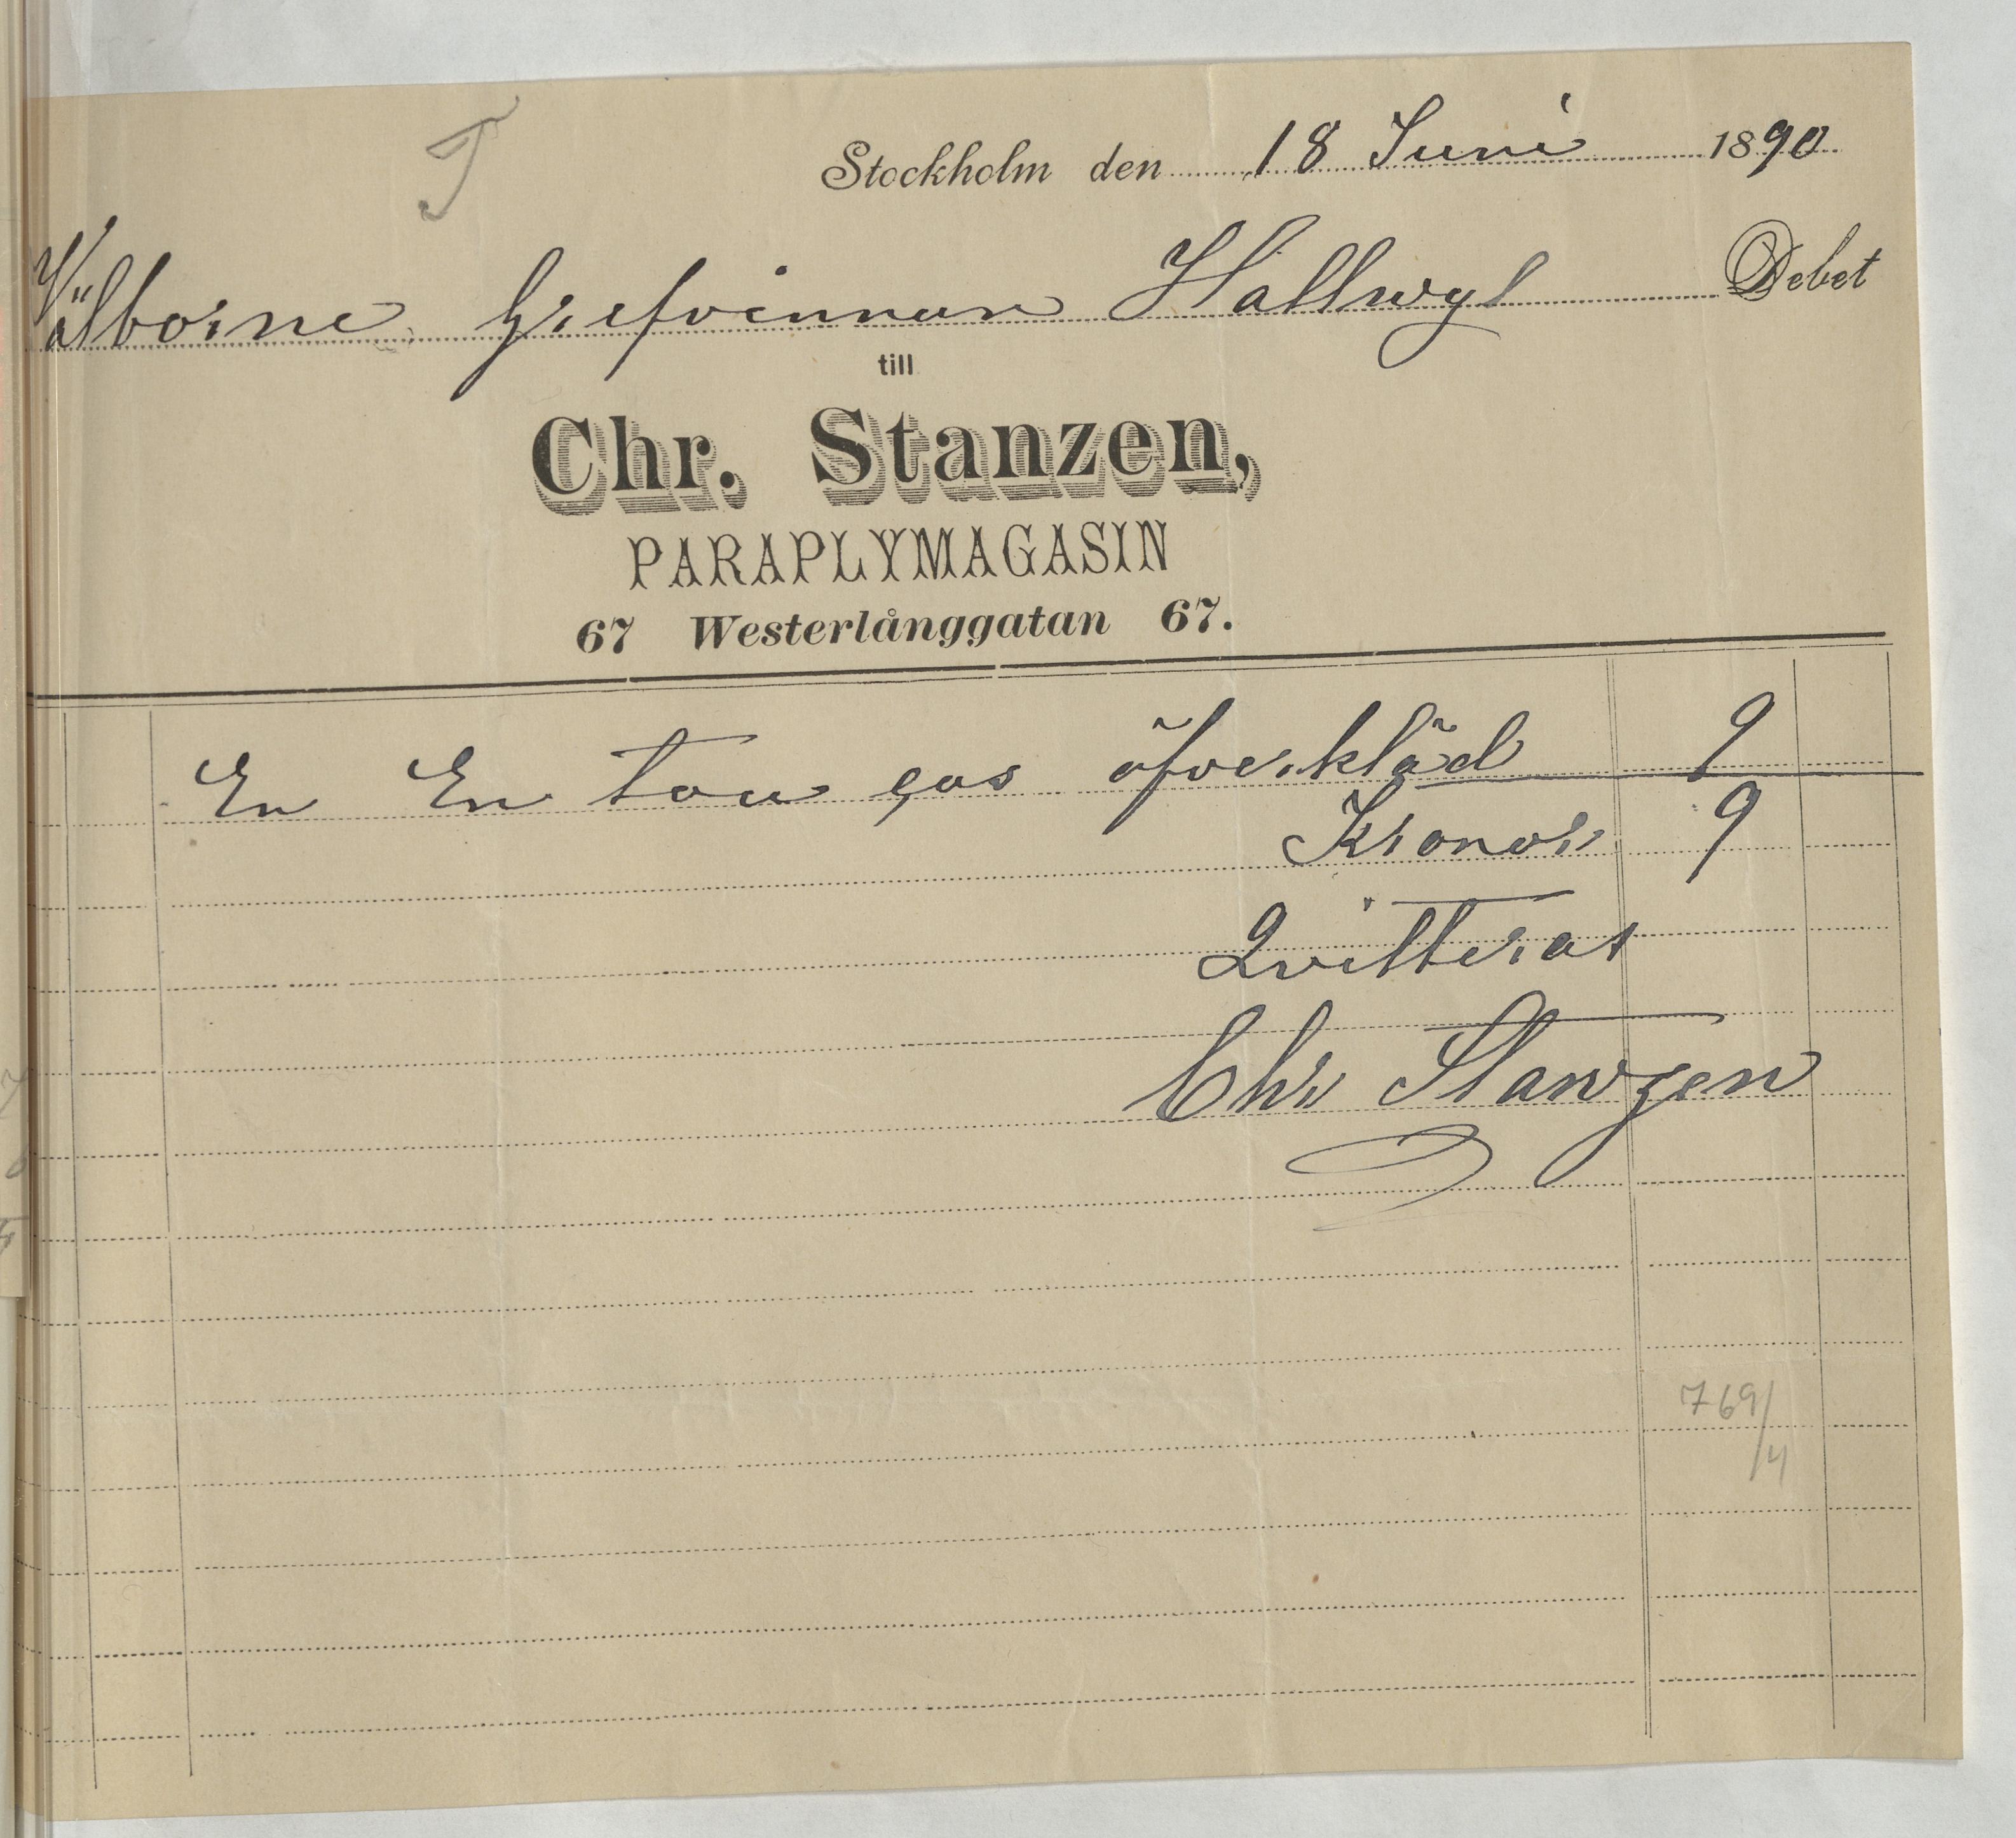 T
Stockholm den 18 Juni 1890
Välborne Grefvinnan Hallwyl Debet
till
Chr. Stanzen,
PARAPLYMAGASIN
67 Westerlånggatan 67.
En En tou ças öfverkläd 9
Kronor 9
Qvitteras
Chr Stanzen
769/4